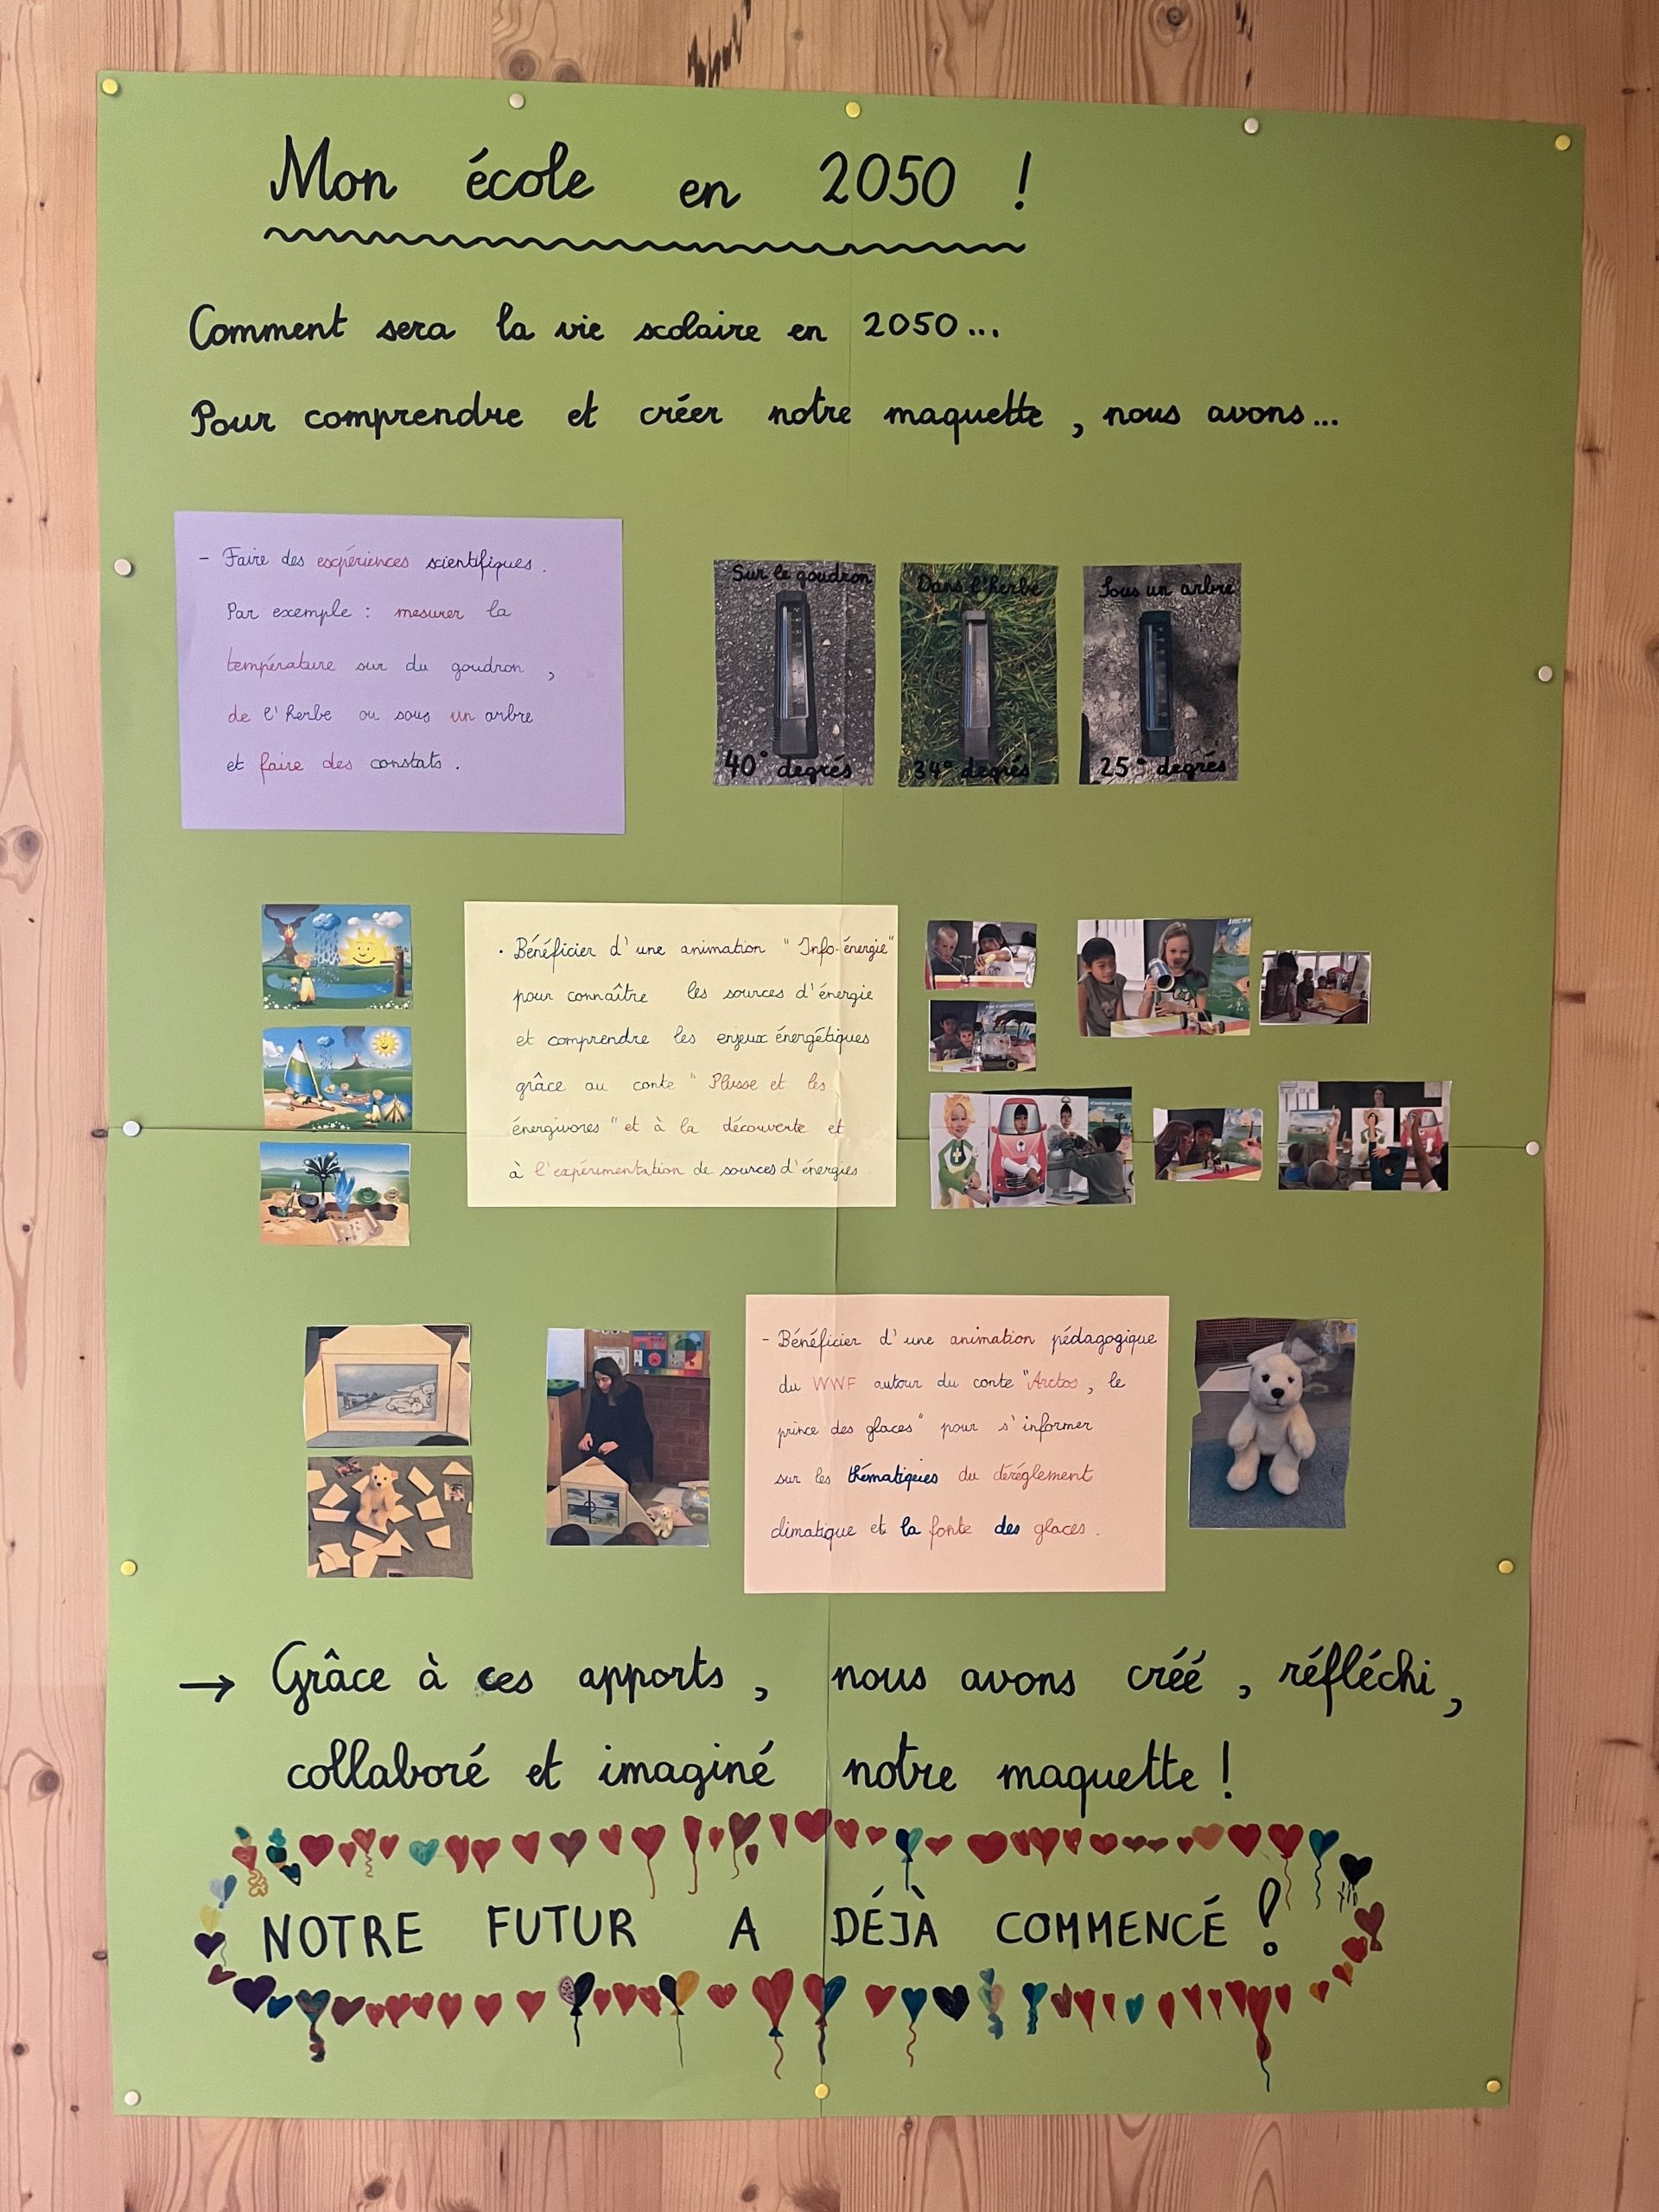 Mon école en 2050 !
Comment sera la vie scolaire en 2050...
Pour comprendre et créer notre maquette, nous avons...
- Faire des expériences scientifiques.
Par exemple : mesurer la
température sur du goudron,
de l'herbe ou sous un arbre
et faire des constats.
Sur le goudron
40° degrés
Dans l'herbe
34° degrés
Sous un arbre
25° degrés
• Bénéficier d'une animation "Info-énergie"
pour connaître les sources d'énergie
et comprendre les enjeux énergétiques
grâce au conte "Plusse et les
énergivores" et à la découverte et
à l'expérimentation de sources d'énergies
- Bénéficier d'une animation pédagogique
du WWF autour du conte "Arctos, le
prince des glaces" pour s'informer
sur les thématiques du déréglement
climatique et la fonte des glaces.
→ Grâce à ces apports, nous avons créé, réfléchi,
collaboré et imaginé notre maquette !
NOTRE FUTUR A DÉJÀ COMMENCÉ !